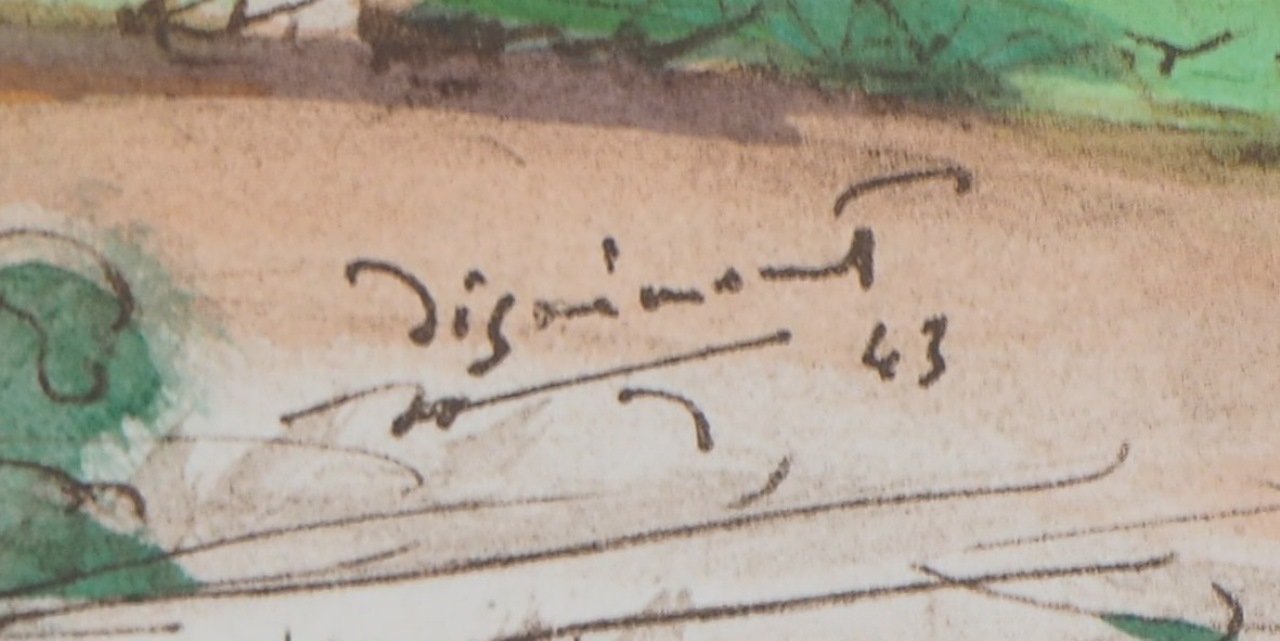 dignimont
43